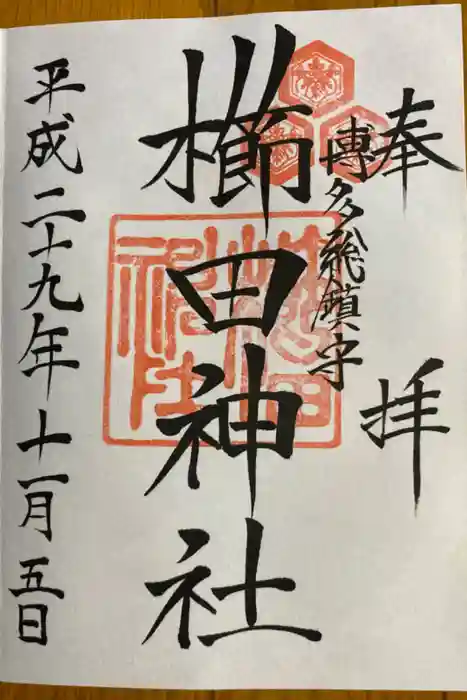 奉拝
博多総鎮守
櫛田神社
平成二十九年十一月五日